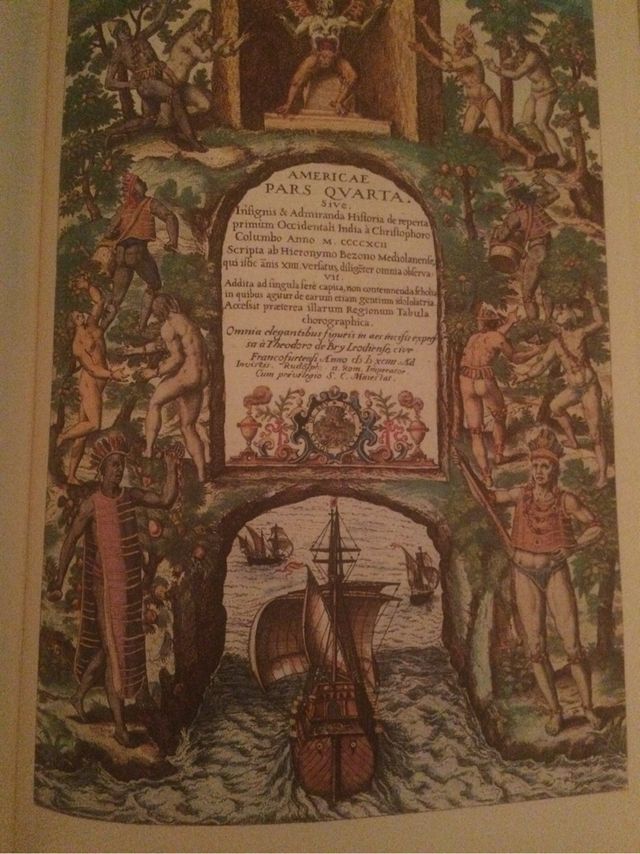 AMERICAE
PARS QVARTA.
Sive,
Insignis & Admiranda Historia de reperta
primùm Occidentali India à Christophoro
Columbo Anno M. CCCCXCII
Scripta ab Hieronymo Bezono Mediolanense,
qui istic ãnis XIIII. versatus, diligẽter omnia observa-
vit.
Addita ad singula ferè capita, non contemnenda scholia,
in quibus agitur de earum etiam gentium idololatria.
Accessit præterea illarum Regionum Tabula
chorographica.
Omnia elegantibus figuris in aes incisis expres-
sa à Theodoro de Bry Leodiense, cive
Francofurtensi Anno
Ad
Invictis. Rudolph. II. Rom. Imperator.
Cum privilegio S. C. Maiestat.